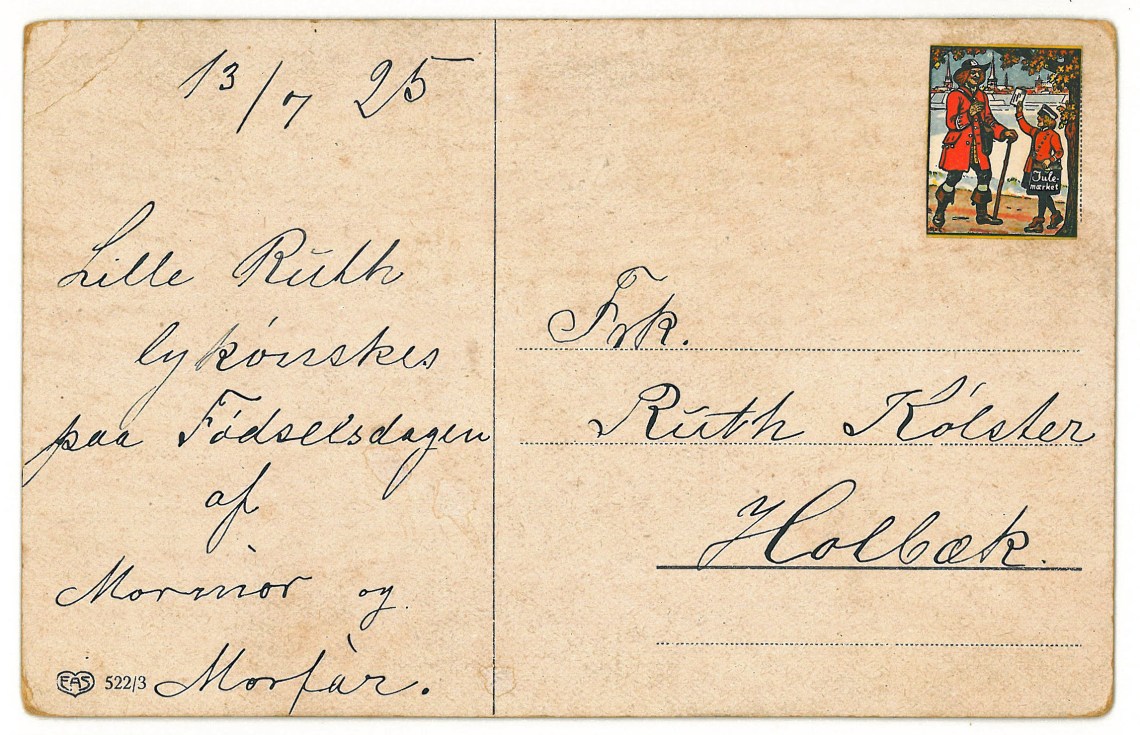 13/7 25
Lille Ruth
lykønskes
paa Fødselsdagen
af
Mormor og
Morfar.
EAS 522/3
Jule-
mærket
Frk.
Ruth Kølster
Holbæk.